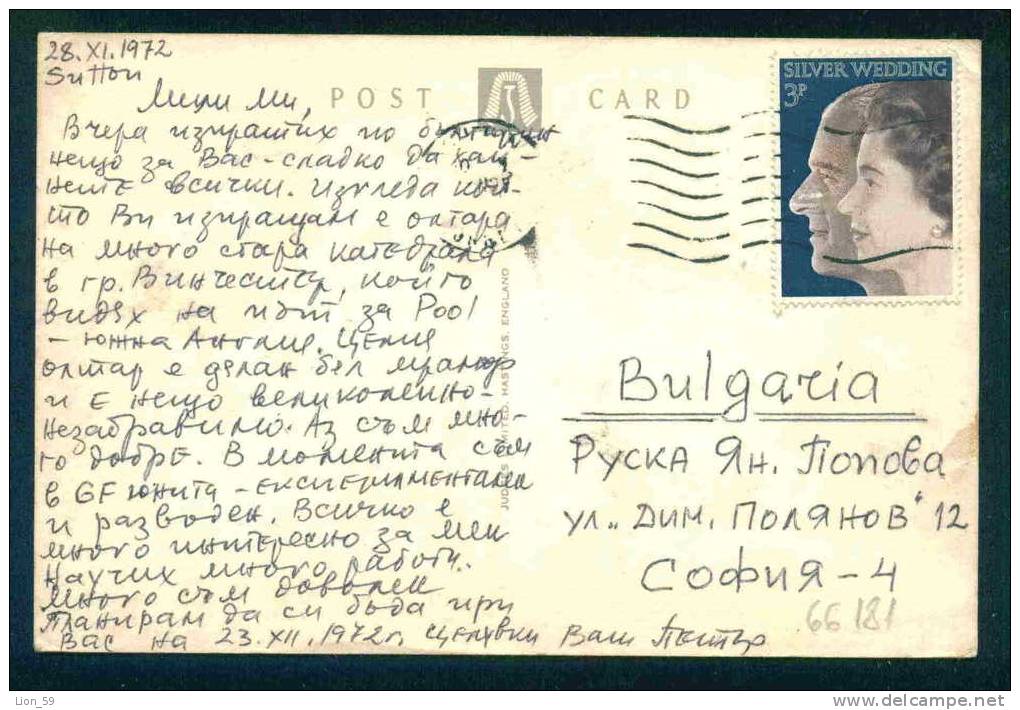 28.XI.1972
Sutton
Мили ми,
POST CARD
SILVER WEDDING
3P
Вчера изпратих по
нещо за Вас - сладко да хап-
нете всички. Изгледа кой-
то Ви изпращам е олтара
на много стара катедрала
в гр. Винчестър, който
видях на път за Pool
- южна Англия. Целия
олтар е делан бел мрамор
и е нещо великолепно -
незабравимо. Аз съм мно-
го добре. В момента съм
в GF юнита - експериментален
и развоен. Всичко е
много интересно за мен
Научих много работи.
Много съм доволен
Планирам да си бъда при
Вас на 23.XII.1972г. Целувки Ваш Петър
JUDGES LIMITED, HASTINGS, ENGLAND
Bulgaria
Руска Ян. Попова
ул. „Дим. Полянов" 12
София - 4
66181
Lion_59
www.delcampe.net